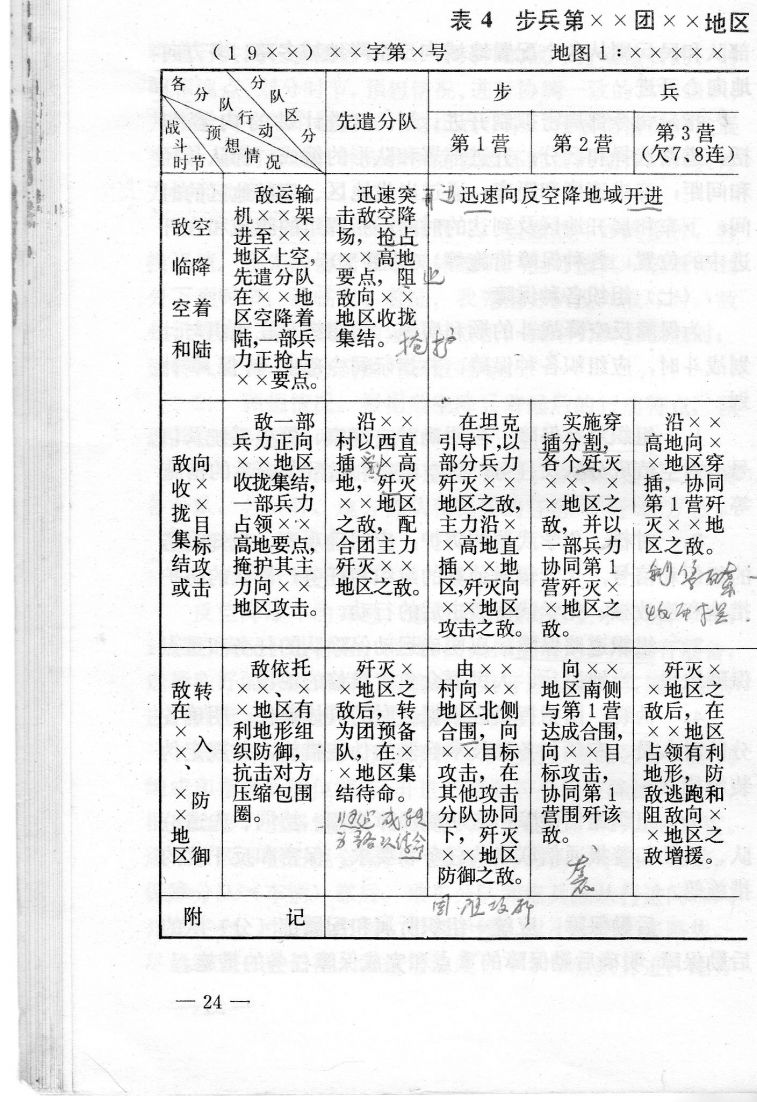 表 4 步兵第××团××地区
(19××)××字第×号 地图1:×××
各分队行动区分
战斗时节
预想情况
先遣分队
步兵
第1营
第2营
第3营
(欠7、8连)
敌空
临降
空着
和陆
敌运输
机××架
进至××
地区上空,
先遣分队
在××地
区空降着
陆,一部兵
力正抢占
××要点。
迅速突
击敌空降
场,抢占
××高地
要点,阻
敌向××
地区收拢
集结。
迅速向反空降地域开进
敌向
收×
拢×
集目
结标
或攻
击
敌一部
兵力正向
××地区
收拢集结,
一部兵力
占领××
高地要点,
掩护其主
力向××
地区攻击。
沿××
村以西直
插××高
地,歼灭
××地区
之敌,配
合团主力
歼灭××
地区之敌。
在坦克
引导下,以
部分兵力
歼灭××
地区之敌,
主力沿×
×高地直
插××地
区,歼灭向
××地区
攻击之敌。
实施穿
插分割,
各个歼灭
××、×
×地区之
敌,并以
一部兵力
协同第1
营歼灭×
×地区之
敌。
沿××
高地向×
×地区穿
插,协同
第1营歼
灭××地
区之敌。
敌转
在入
×防
×御
地
区
敌依托
××、×
×地区有
利地形组
织防御,
抗击对方
压缩包围
圈。
歼灭×
×地区之
敌后,转
为团预备
队,在×
×地区集
结待命。
由××
村向××
地区北侧
合围,向
××目标
攻击,在
其他攻击
分队协同
下,歼灭
××地区
防御之敌。
向××
地区南侧
与第1营
达成合围,
向××目
标攻击,
协同第1
营围歼该
敌。
歼灭×
×地区之
敌后,在
××地区
占领有利
地形,防
敌逃跑和
阻敌向×
×地区之
敌增援。
附记
— 24 —